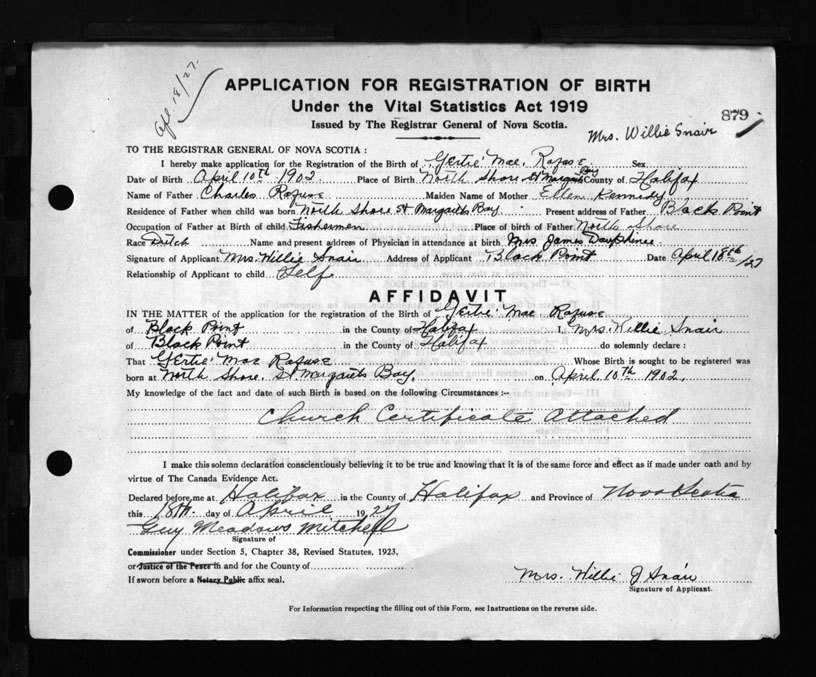 Apl. 18/27.
APPLICATION FOR REGISTRATION OF BIRTH
Under the Vital Statistics Act 1919
879
Issued by The Registrar General of Nova Scotia.
Mrs. Willie Snair
TO THE REGISTRAR GENERAL OF NOVA SCOTIA :
I hereby make application for the Registration of the Birth of Gertie Mae. Rafuse Sex
Date of Birth April 10th 1902. Place of Birth North Shore St Margarets Bay County of Halifax
Name of Father Charles Rafuse Maiden Name of Mother Ellen Kennedy
Residence of Father when child was born North Shore St Margarets Bay Present address of Father Black Point
Occupation of Father at Birth of child Fishermen Place of birth of Father North Shore
Race Dutch Name and present address of Physician in attendance at birth Mrs James Dauphinee
Signature of Applicant Mrs. Willie Snair Address of Applicant Black Point Date April 18th/27
Relationship of Applicant to child Self
AFFIDAVIT
IN THE MATTER of the application for the registration of the Birth of Gertie Mae Rafuse
of Black Point in the County of Halifax I, Mrs. Willie Snair
of Black Point in the County of Halifax do solemnly declare :
That Gertie Mae Rafuse Whose Birth is sought to be registered was
born at North Shore. St Margarets Bay. on April 10th 1902.
My knowledge of the fact and date of such Birth is based on the following Circumstances :-
Church Certificate Attached
I make this solemn declaration conscientiously believing it to be true and knowing that it is of the same force and effect as if made under oath and by
virtue of The Canada Evidence Act.
Declared before me at Halifax in the County of Halifax and Province of Nova Scotia
this 18th day of April 1927
Guy Meadows Mitchell
Signature of
Commissioner under Section 5, Chapter 38, Revised Statutes, 1923,
or Justice of the Peace in and for the County of
If sworn before a Notary Public affix seal.
Mrs. Willie J Snair
Signature of Applicant.
For Information respecting the filling out of this Form, see Instructions on the reverse side.